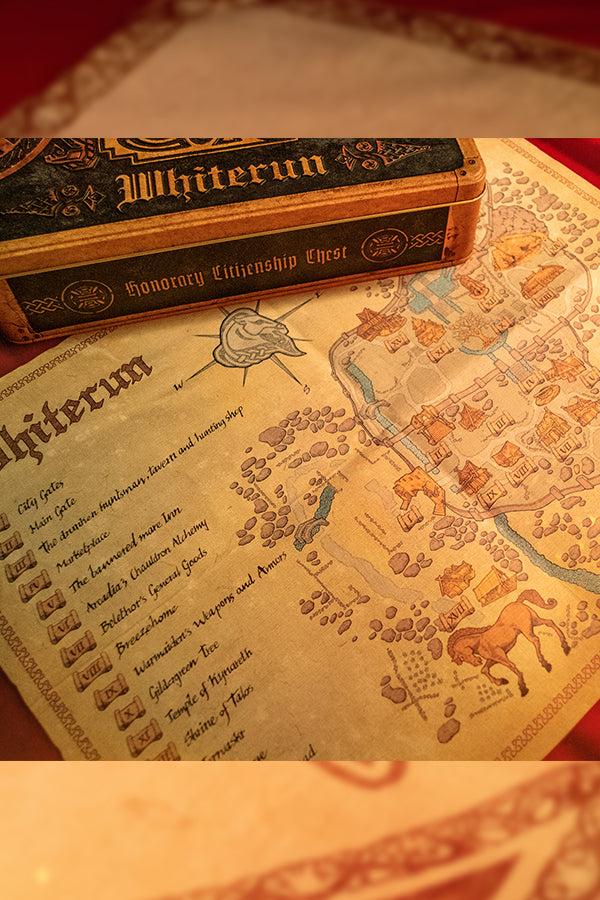 Whiterun
Honorary Citizenship Chest
Whiterun
W
S
City Gates
Main Gate
The drunken huntsman, tavern and hunting shop
Marketplace
The bannered mare Inn
Arcadia's Chauldron Alchemy
Belethor's General Goods
Breezehome
Warmaiden's Weapons and Armors
Gildergreen Tree
Temple of Kynareth
Shrine of Talos
III
IV
V
VI
VII
VIII
IX
X
XI
XVII